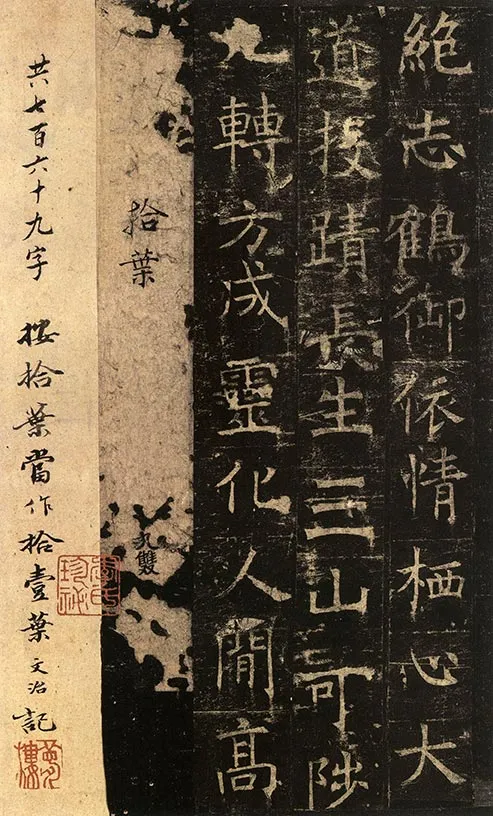 絶志鶴御依情栖心大
道投蹟長生三山可陟
九轉方成靈化人閒高
拾葉
九雙
共七百六十九字
按拾葉當作拾壹葉文治記
夢樓